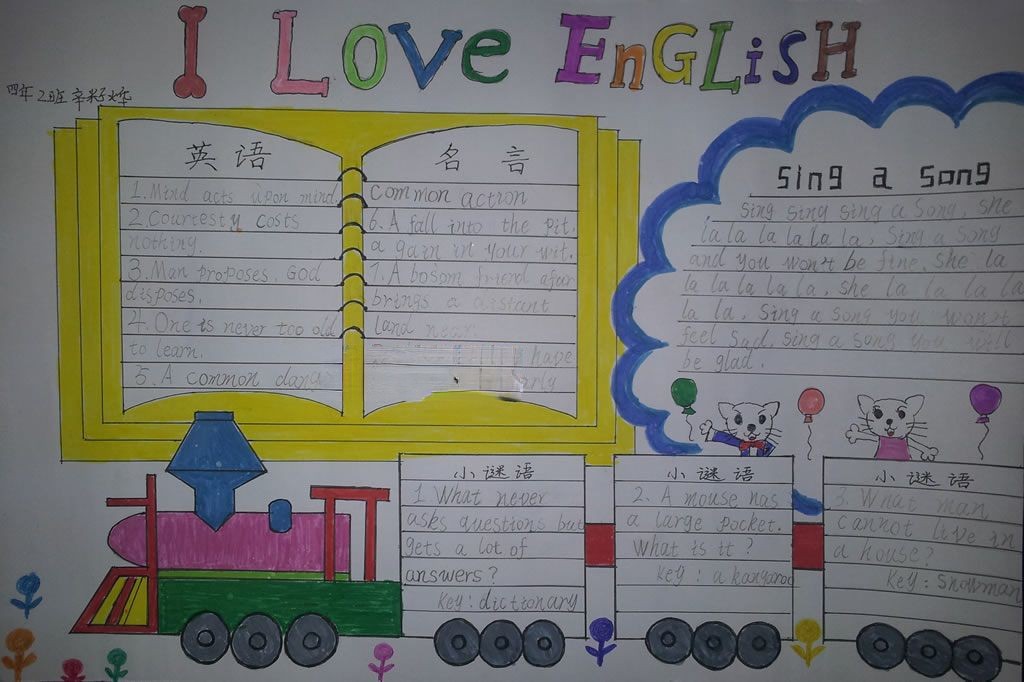 I Love EnGLiSH
四年2班
英语 名言
1. Mind acts upon mind
2. Courtesty costs
nothing.
3. Man proposes. God
disposes.
4. One is never too old
to learn.
5. A common dang
common action
6. A fall into the pit.
a gain in your wit.
7. A bosom friend afar
brings a distant
land near.
have
arly
Sing a Song
Sing sing sing a Song, she
la la la la la la, Sing a Song
and you won't be fine, she la
la la la la la, she la la la la
la la, Sing a song you won't
feel sad, sing a song you will
be glad.
小谜语
1 What never
asks questions but
gets a lot of
answers?
Key: dictionary
小谜语
2. A mouse has
a large pocket.
What is it?
key: a kangaroo
小谜语
3. What man
cannot live in
a house?
Key: Snowman